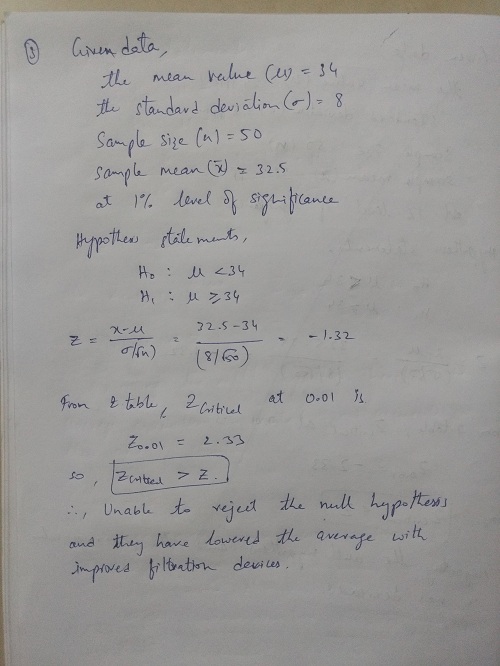 ③ Given data,
the mean value (μ) = 34
the standard deviation (σ) = 8
Sample size (n) = 50
sample mean (x̄) = 32.5
at 1% level of significance
Hypotheses statements,
H₀ : μ < 34
H₁ : μ ≥ 34
Z = x-μ / σ/√n) = 32.5-34 / (8/√50) = -1.32
From Z table, Zcritical at 0.01 is
Z0.01 = 2.33
so, Zcritical > Z.
∴, Unable to reject the null hypothesis
and they have lowered the average with
improved filtration devices.